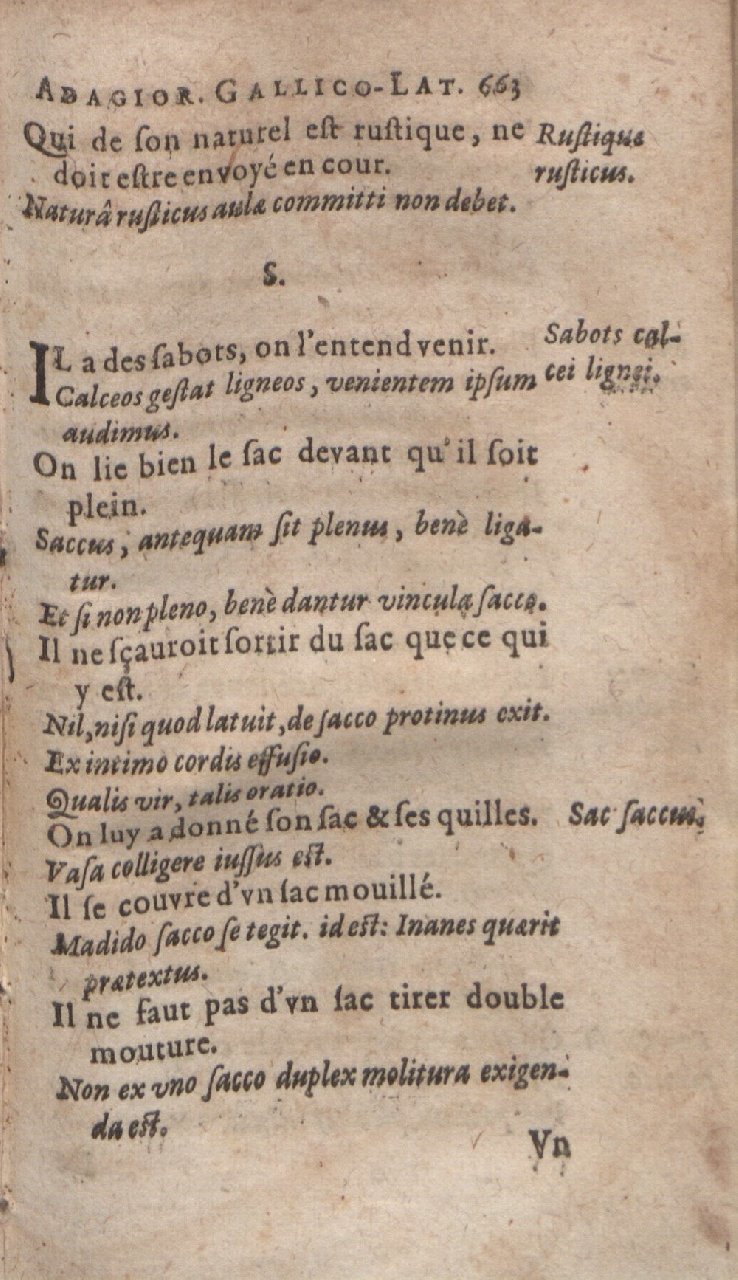 ADAGIOR. GALLICO-LAT. 663
Qui de ſon naturel eſt ruſtique, ne
doit eſtre envoyé en cour.
Ruſtique
ruſticus.
Naturâ ruſticus aulæ committi non debet.
S.
IL a des ſabots, on l'entend venir.
Calceos geſtat ligneos, venientem ipſum
audimus.
Sabots cal-
cei lignei.
On lie bien le ſac devant qu'il ſoit
plein.
Saccus, antequam ſit plenus, benè liga-
tur.
Et ſi non pleno, benè dantur vincula ſacco.
Il ne sçauroit ſortir du ſac que ce qui
y eſt.
Nil, niſi quod latuit, de ſacco protinus exit.
Ex intimo cordis effuſio.
Qualis vir, talis oratio.
On luy a donné ſon ſac & ſes quilles.
Sac ſaccus.
Vaſa colligere iuſſus eſt.
Il ſe couvre d'vn ſac mouillé.
Madido ſacco ſe tegit. id eſt: Inanes quærit
prætextus.
Il ne faut pas d'vn ſac tirer double
mouture.
Non ex vno ſacco duplex molitura exigen-
da eſt.
Vn